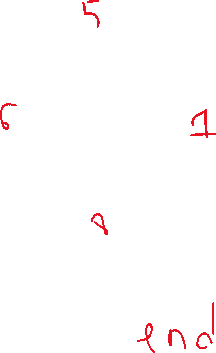 5
6 1
8
end